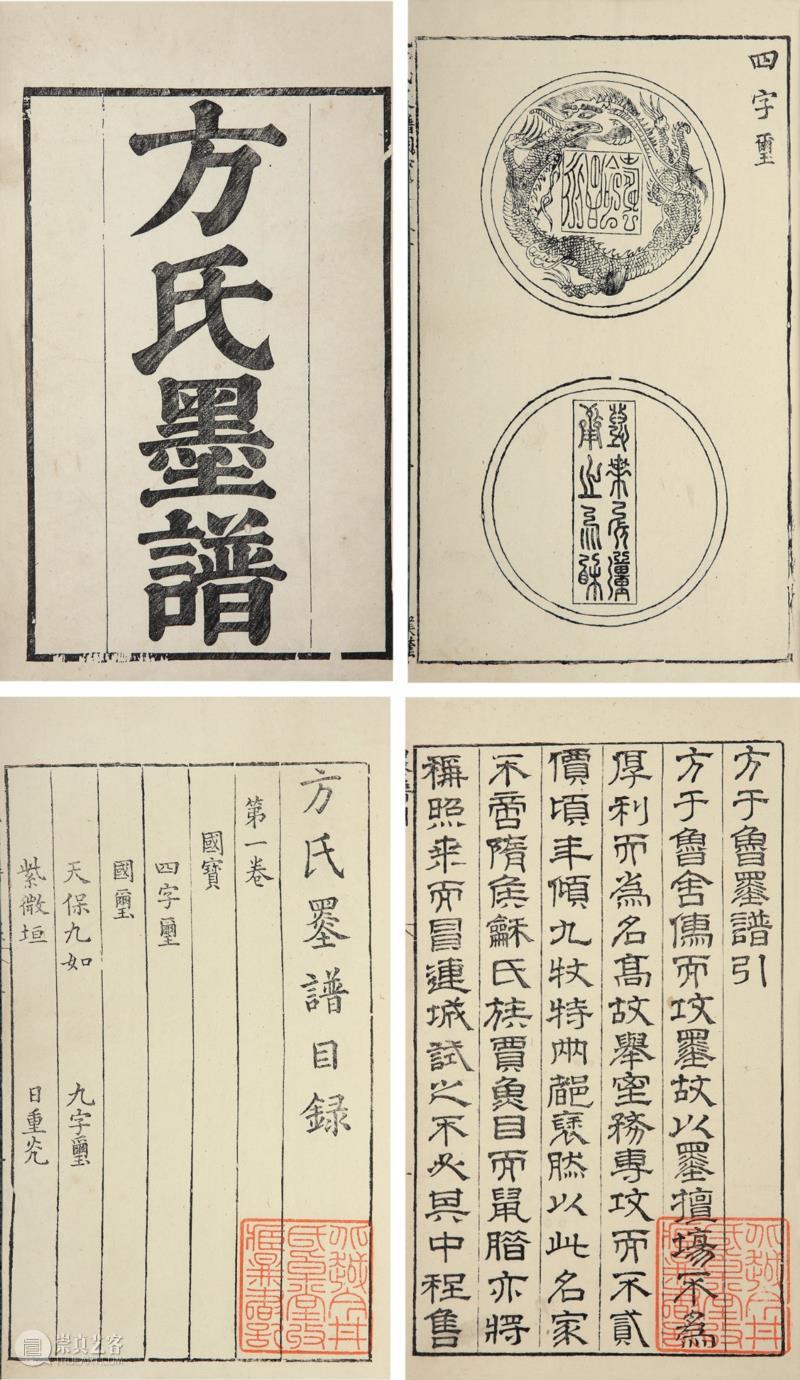 方氏墨譜
四字璽
方氏墨譜目録
第一卷
國寶
四字璽
國璽
天保九如 九字璽
紫微垣 日重光
方于魯墨譜引
方于魯舍儒而攻墨故以墨擅場不為
厚利而為名高故舉室務專攻而不貳
價頃年傾九牧特兩都褎肰以此名家
不啻隋侯龢氏族賈魚目而鼠腊亦將
稱照乘而冒連城試之不必其中程售
崇真艺客